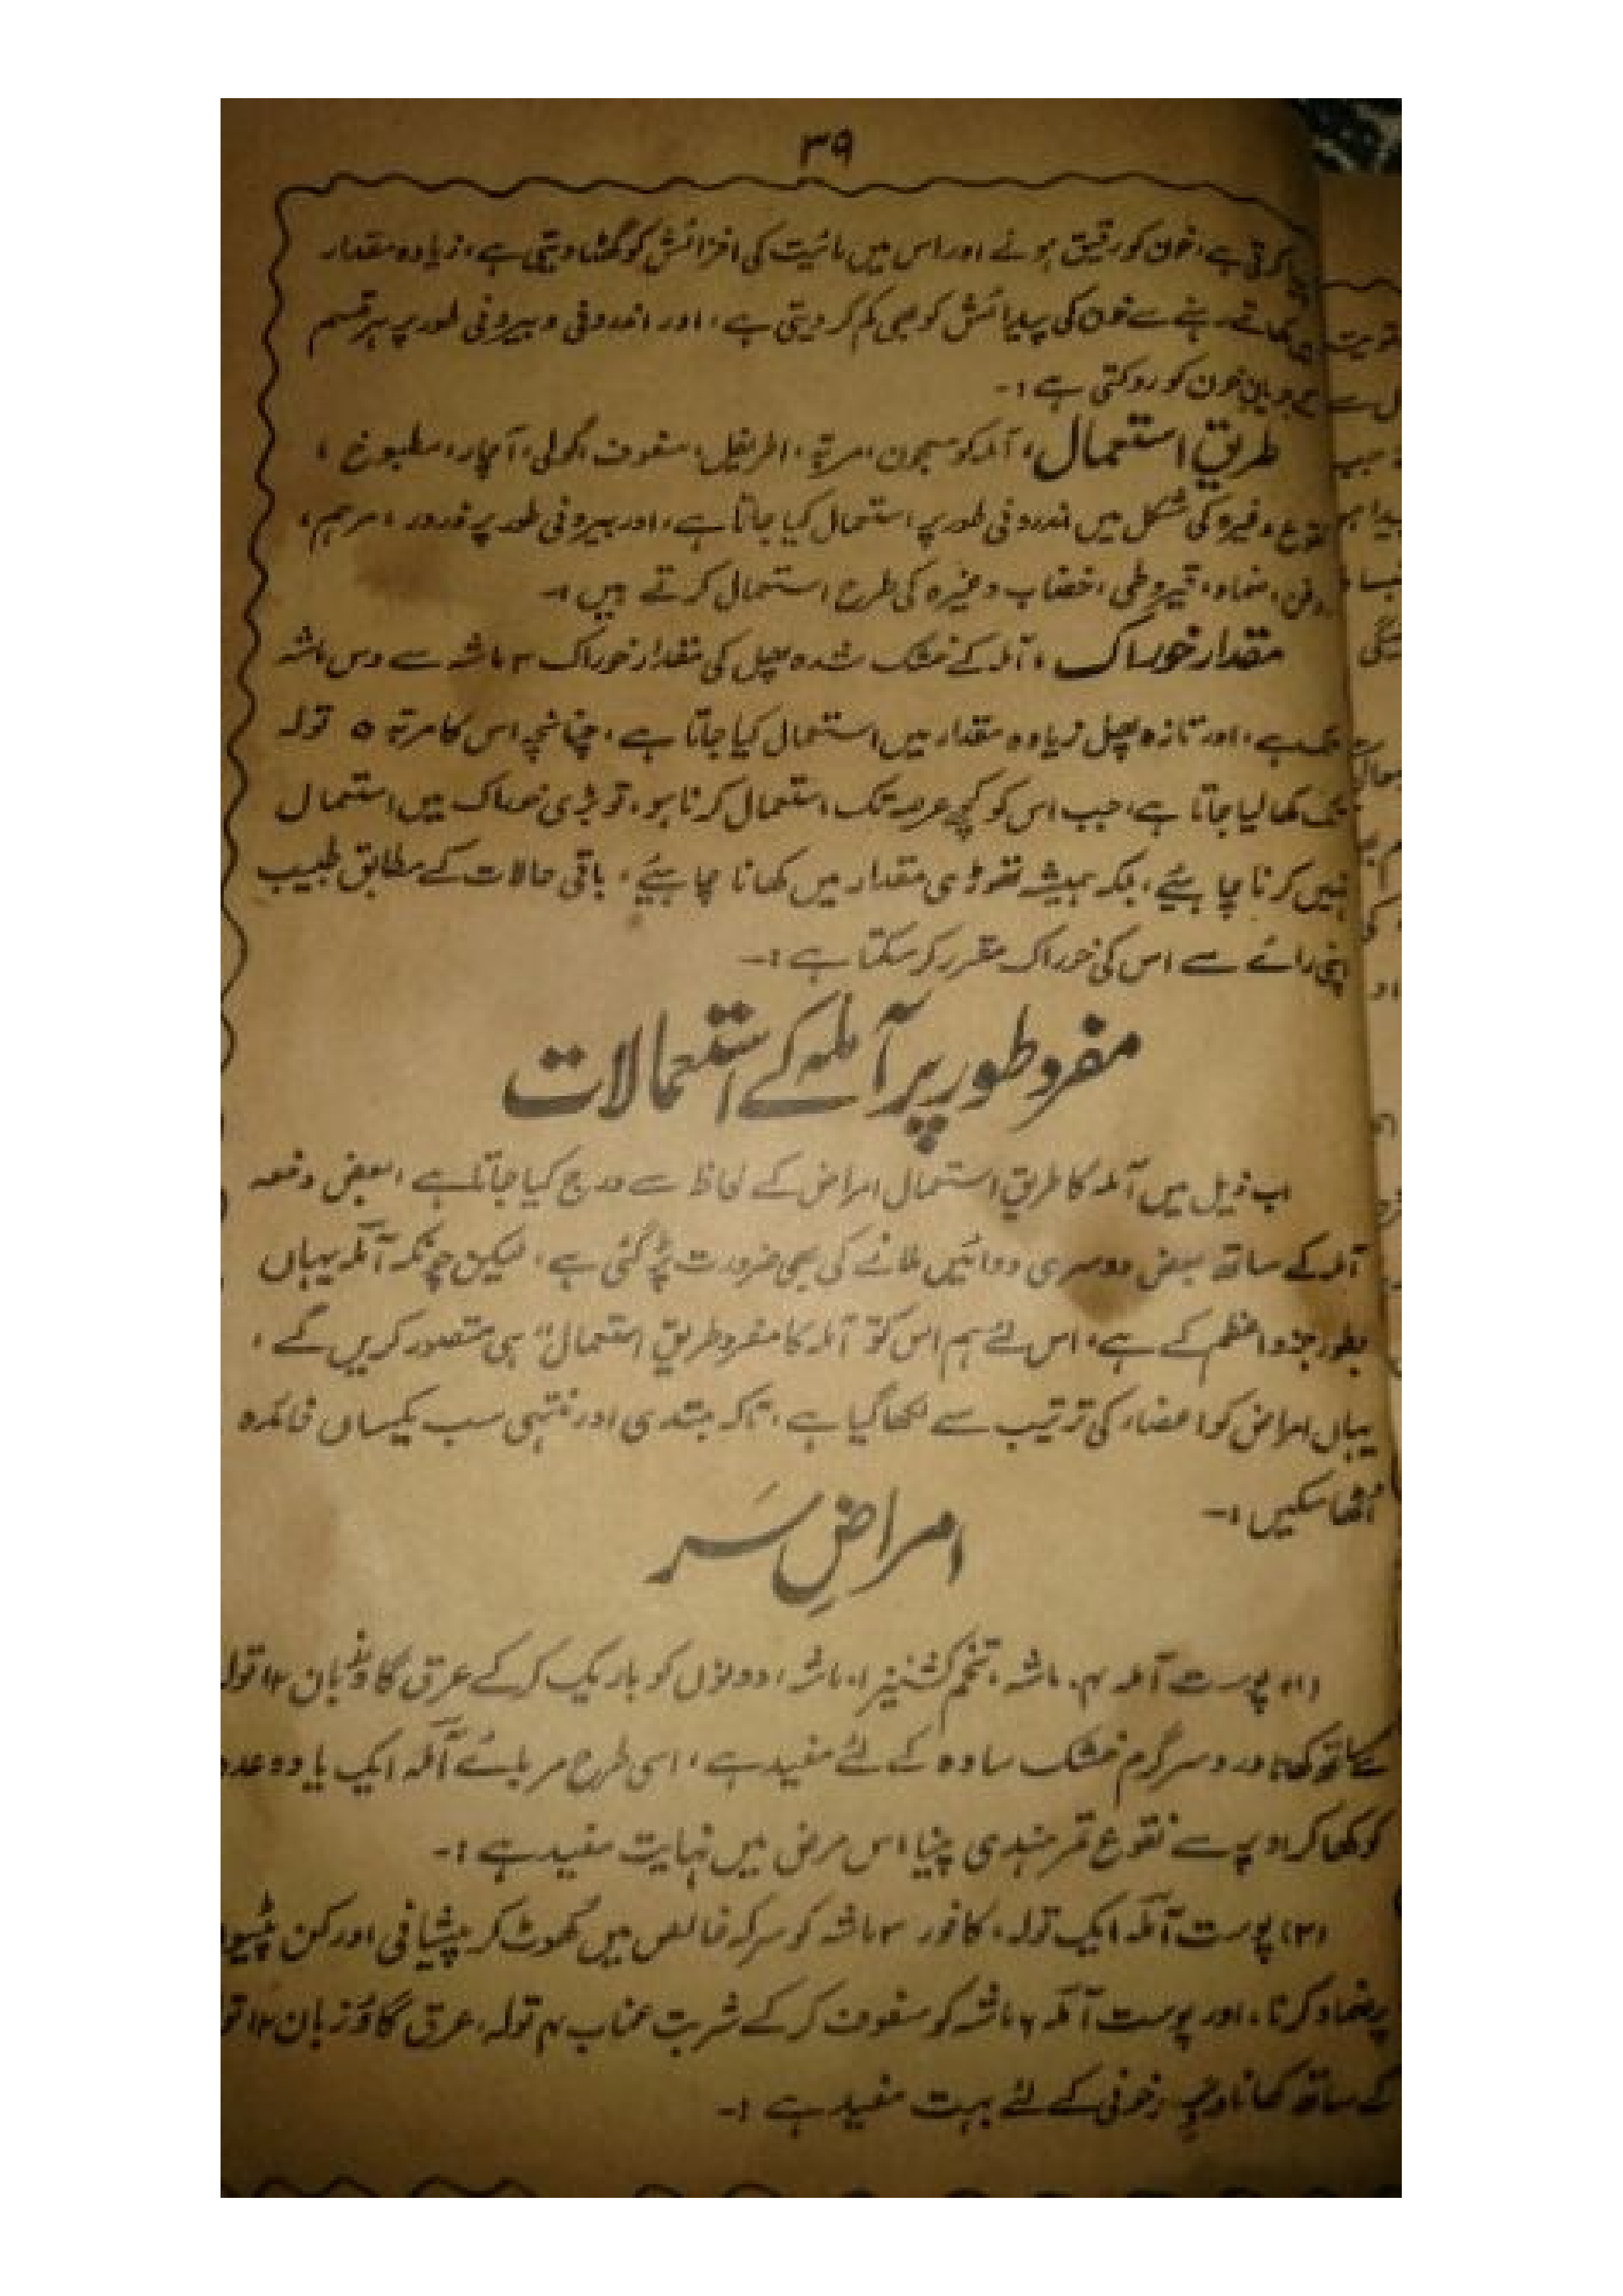 ۳۹
کرتی ہے، خون کو رقیق ہونے اور اس میں مائیت کی افزائش کو گھٹا دیتی ہے، زیادہ مقدار
کھاتے رہنے سے خون کی پیدائش کو بھی کم کر دیتی ہے، اور اندرونی و بیرونی طور پر ہر قسم
جریان خون کو روکتی ہے :-
طریقِ استعمال، آملہ کو معجون، مربّہ، اطریفل، سفوف، گولی، آچار، مطبوخ،
نقوع وغیرہ کی شکل میں اندرونی طور پر استعمال کیا جاتا ہے، اور بیرونی طور پر ذرور، مرہم،
روغن، ضماد، قیروطی، خضاب وغیرہ کی طرح استعمال کرتے ہیں :-
مقدار خوراک، آملہ کے خشک شدہ پھل کی مقدار خوراک ۳ ماشہ سے دس ماشہ
تک ہے، اور تازہ پھل زیادہ مقدار میں استعمال کیا جاتا ہے، چنانچہ اس کا مربّہ ۵ تولہ
تک کھا لیا جاتا ہے، جب اس کو کچھ عرصہ تک استعمال کرنا ہو، تو بڑی خوراک میں استعمال
نہیں کرنا چاہئیے، بلکہ ہمیشہ تھوڑی مقدار میں کھانا چاہئیے، باقی حالات کے مطابق طبیب
اپنی رائے سے اس کی خوراک مقرر کر سکتا ہے :-
مفرد طور پر آملہ کے استعمالات
اب ذیل میں آملہ کا طریقِ استعمال امراض کے لحاظ سے درج کیا جاتا ہے، بعض دفعہ
آملہ کے ساتھ بعض دوسری دوائیں ملانے کی بھی ضرورت پڑ گئی ہے، لیکن چونکہ آملہ یہاں
بطور جزو اعظم کے ہے، اس لئے ہم اس کو "آملہ کا مفرد طریقِ استعمال" ہی متصور کریں گے،
یہاں امراض کو اعضاء کی ترتیب سے لکھا گیا ہے، تاکہ مبتدی اور منتہی سب یکساں فائدہ
اُٹھا سکیں :-
امراضِ سَر
(۱) پوست آملہ ۴ ماشہ، تخم کشنیز ۱۰ ماشہ، دونوں کو باریک کر کے عرق گاؤزبان ۱۲ تولہ
کے ساتھ کھانا درد سر گرم خشک سادہ کے لئے مفید ہے، اسی طرح مربائے آملہ ایک یا دو عدد
کو کھا کر اوپر سے نقوع تمر ہندی پینا اس مرض میں نہایت مفید ہے :-
(۲) پوست آملہ ایک تولہ، کافور ۳ ماشہ کو سرکہ خالص میں گھوٹ کر پیشانی اور کن پٹیوں
پر ضماد کرنا، اور پوست آملہ ۶ ماشہ کو سفوف کر کے شربت عناب ۴ تولہ، عرق گاؤزبان ۱۲ تو
کے ساتھ کھانا خونی کے لئے بہت مفید ہے :-